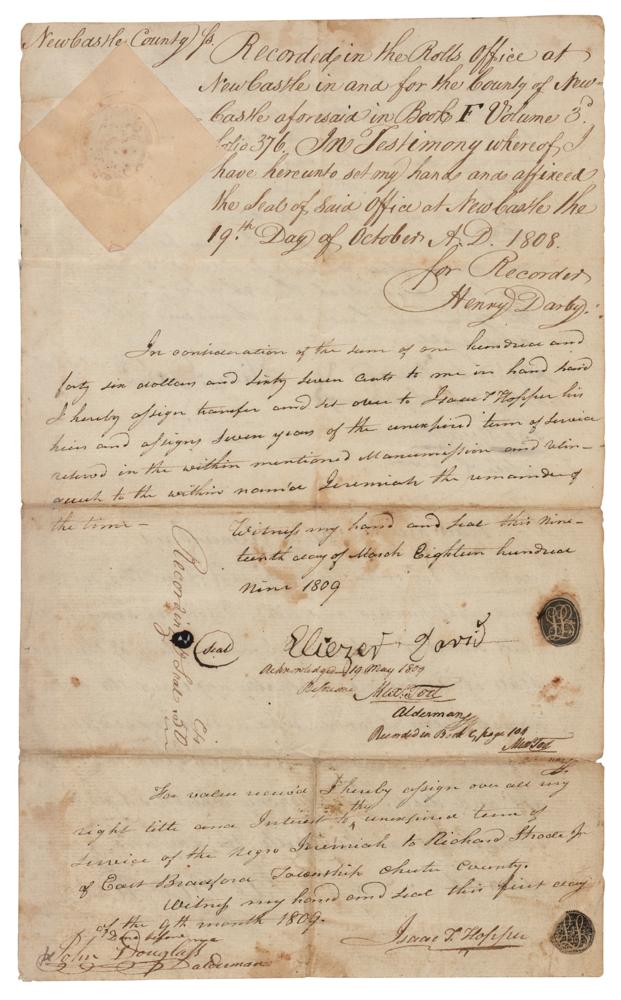 New Castle County ss.
Recorded in the Rolls Office at
New Castle in and for the County of New-
Castle aforesaid in Book F Volume 3d.
folio 376, In Testimony whereof I
have hereunto set my hand and affixed
the Seal of Said Office at New Castle the
19.th Day of October A.D. 1808.
for Recorder
Henry Darby.
In consideration of the sum of one hundred and
forty six dollars and sixty seven cents to me in hand paid
I hereby assign transfer and set over to Isaac T Hopper his
heirs and assigns seven years of the unexpired term of service
reserved in the within mentioned Manumission and relin-
quish to the within named Jeremiah the remainder of
the time -
Witness my hand and seal this nine-
teenth day of March Eighteen hundred
nine 1809
Recording & Seal
Seal
Eliezer David
Acknowledged 19 May 1809
Before me
Alderman
Recorded in Book C, page 104
For value received I hereby assign over all my
right title and Interest to thy unexpired term of
service of the negro Jeremiah to Richard Strode Jr
of East Bradford Township Chester County.
Witness my hand and seal this first day
of the 9th month 1809.
Isaac T. Hopper
John Douglass
alderman